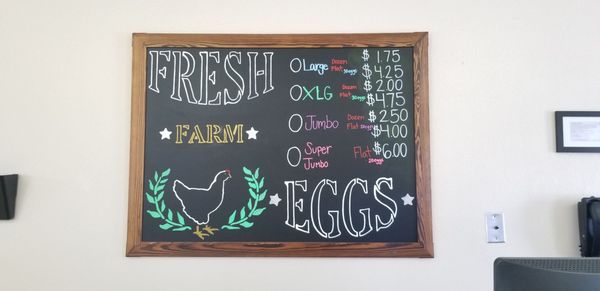 FRESH
FARM
EGGS
Large Dozen $1.75
Flat 30eggs $4.25
XLG Dozen $2.00
Flat 30eggs $4.75
Jumbo Dozen $2.50
Flat $4.00
Super Jumbo Flat $6.00